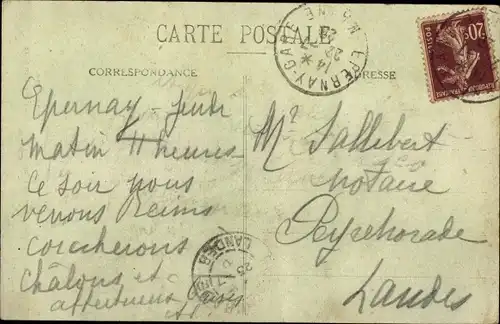 CARTE POSTALE
CORRESPONDANCE
ADRESSE
EPERNAY-GARE
MARNE
20c
POSTES
Epernay - Jeudi
matin 11 heures
Ce soir nous
verrons Reims
coucherons
Châlons et
affectueux
Mr Lallebert
notaire
Peyrehorade
Landes
LANDES